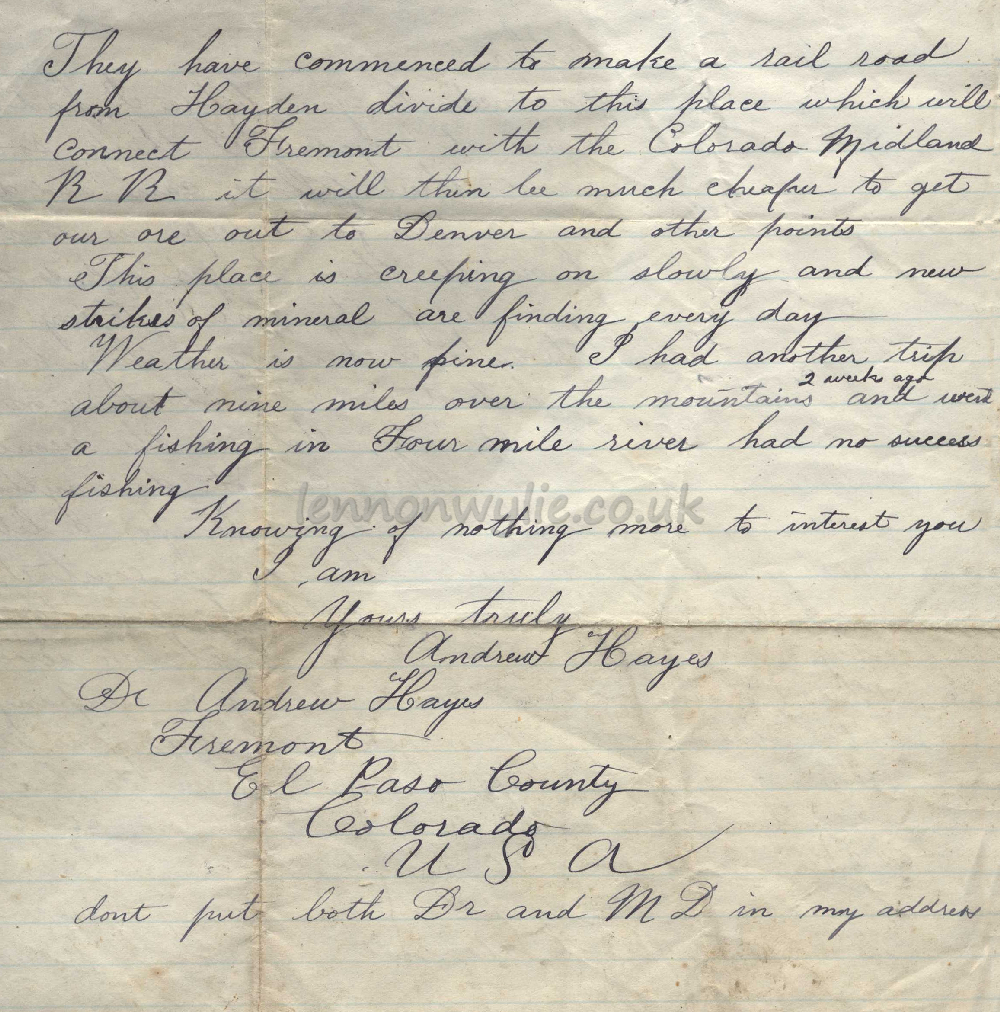 They have commenced to make a rail road
from Hayden divide to this place which will
connect Fremont with the Colorado Midland
R R it will then be much cheaper to get
our ore out to Denver and other points
This place is creeping on slowly and new
strikes of mineral are finding every day
Weather is now fine. I had another trip
2 week ago
about nine miles over the mountains and went
a fishing in Four mile river had no success
fishing
lennonwylie.co.uk
Knowing of nothing more to interest you
I am
Yours truly
Andrew Hayes
Dr Andrew Hayes
Fremont
El Paso County
Colorado
U S A
dont put both Dr and M D in my address